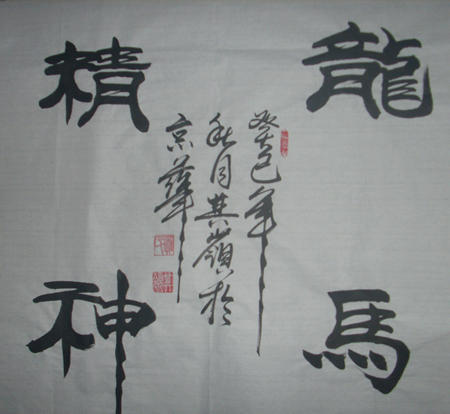 龍馬
精神
癸巳年
秋月其嶺於
京華